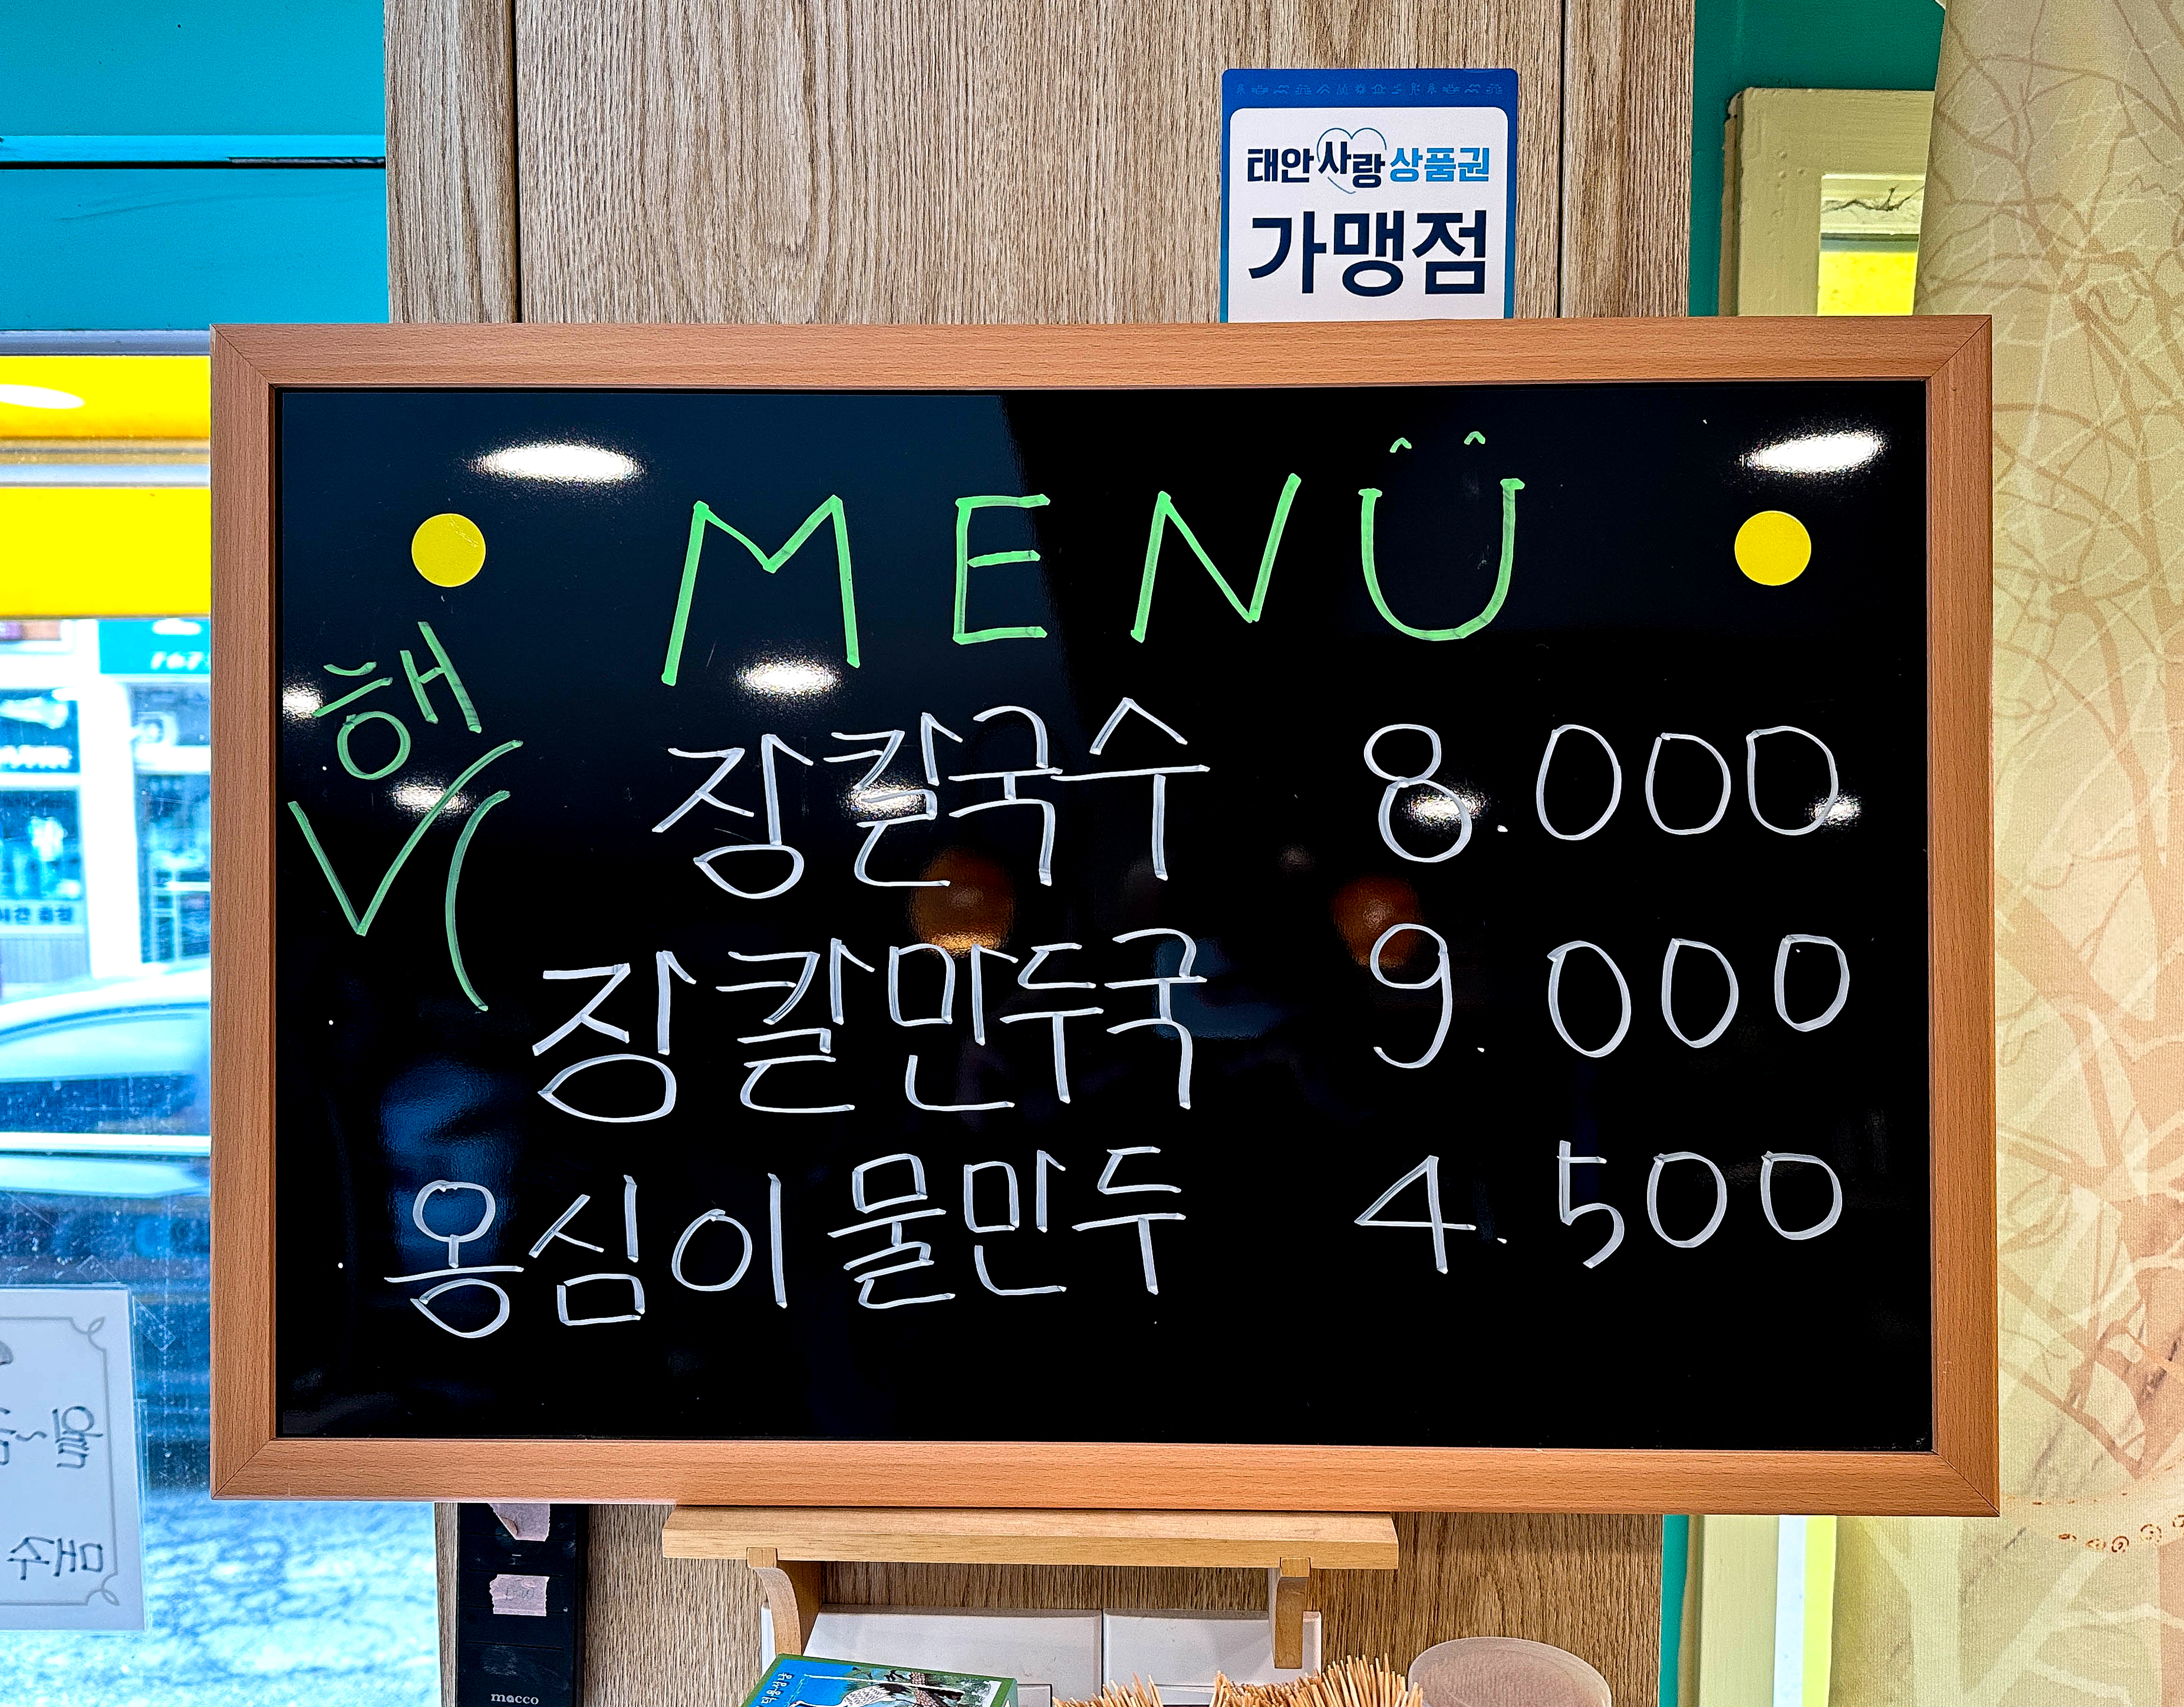 태안사랑상품권
가맹점
MENU
해
장칼국수 8.000
장칼만두국 9.000
옹심이 물만두 4.500
macco